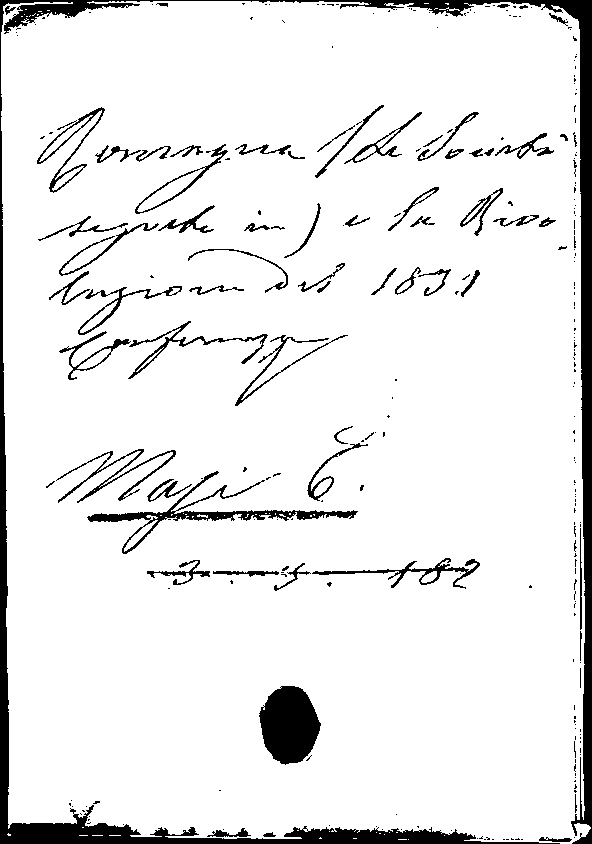 Romagna (Le Società
segrete in) e la Rivo-
luzione del 1831
Conferenza
Masi E.
3. 5. 182